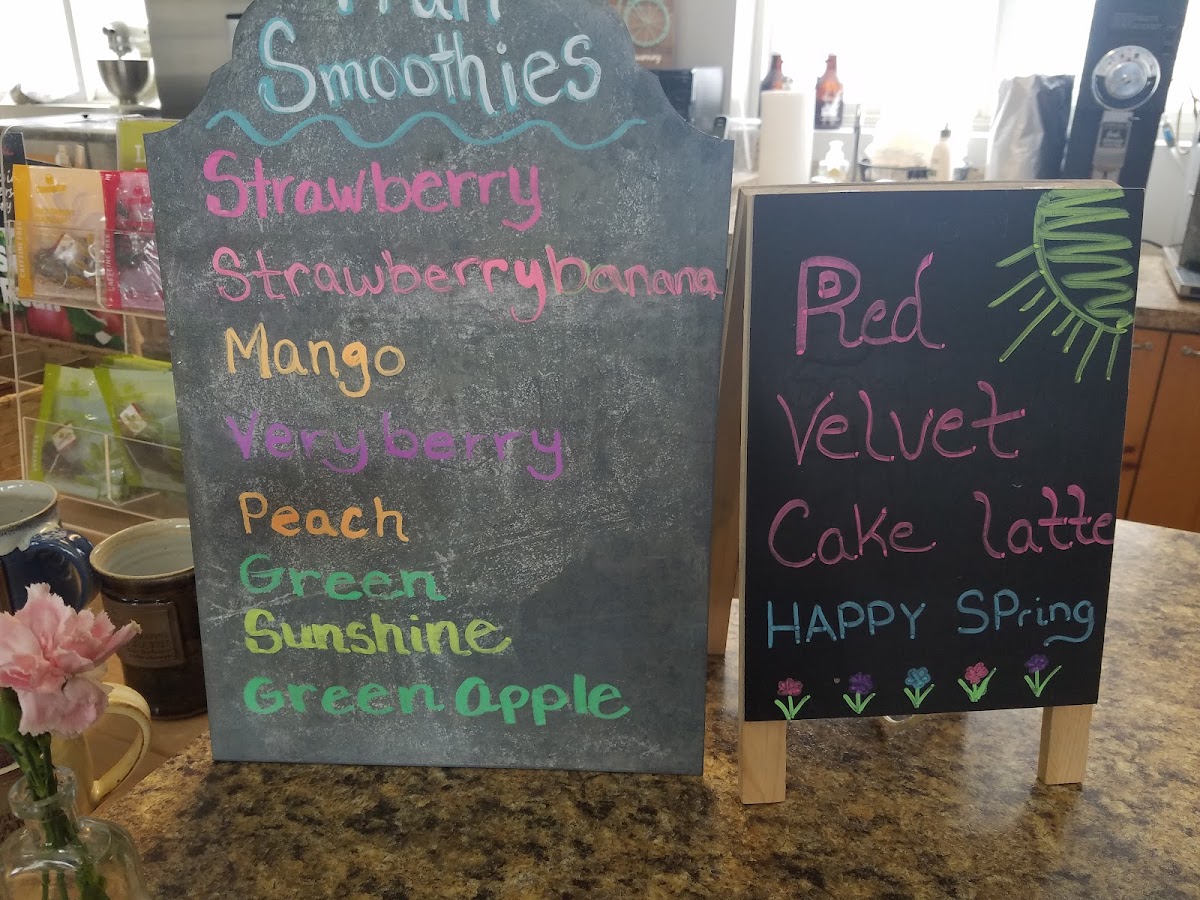 Fruit
Smoothies
Strawberry
Strawberrybanana
Mango
Veryberry
Peach
Green
Sunshine
Green Apple
Red
Velvet
Cake latte
HAPPY SPring